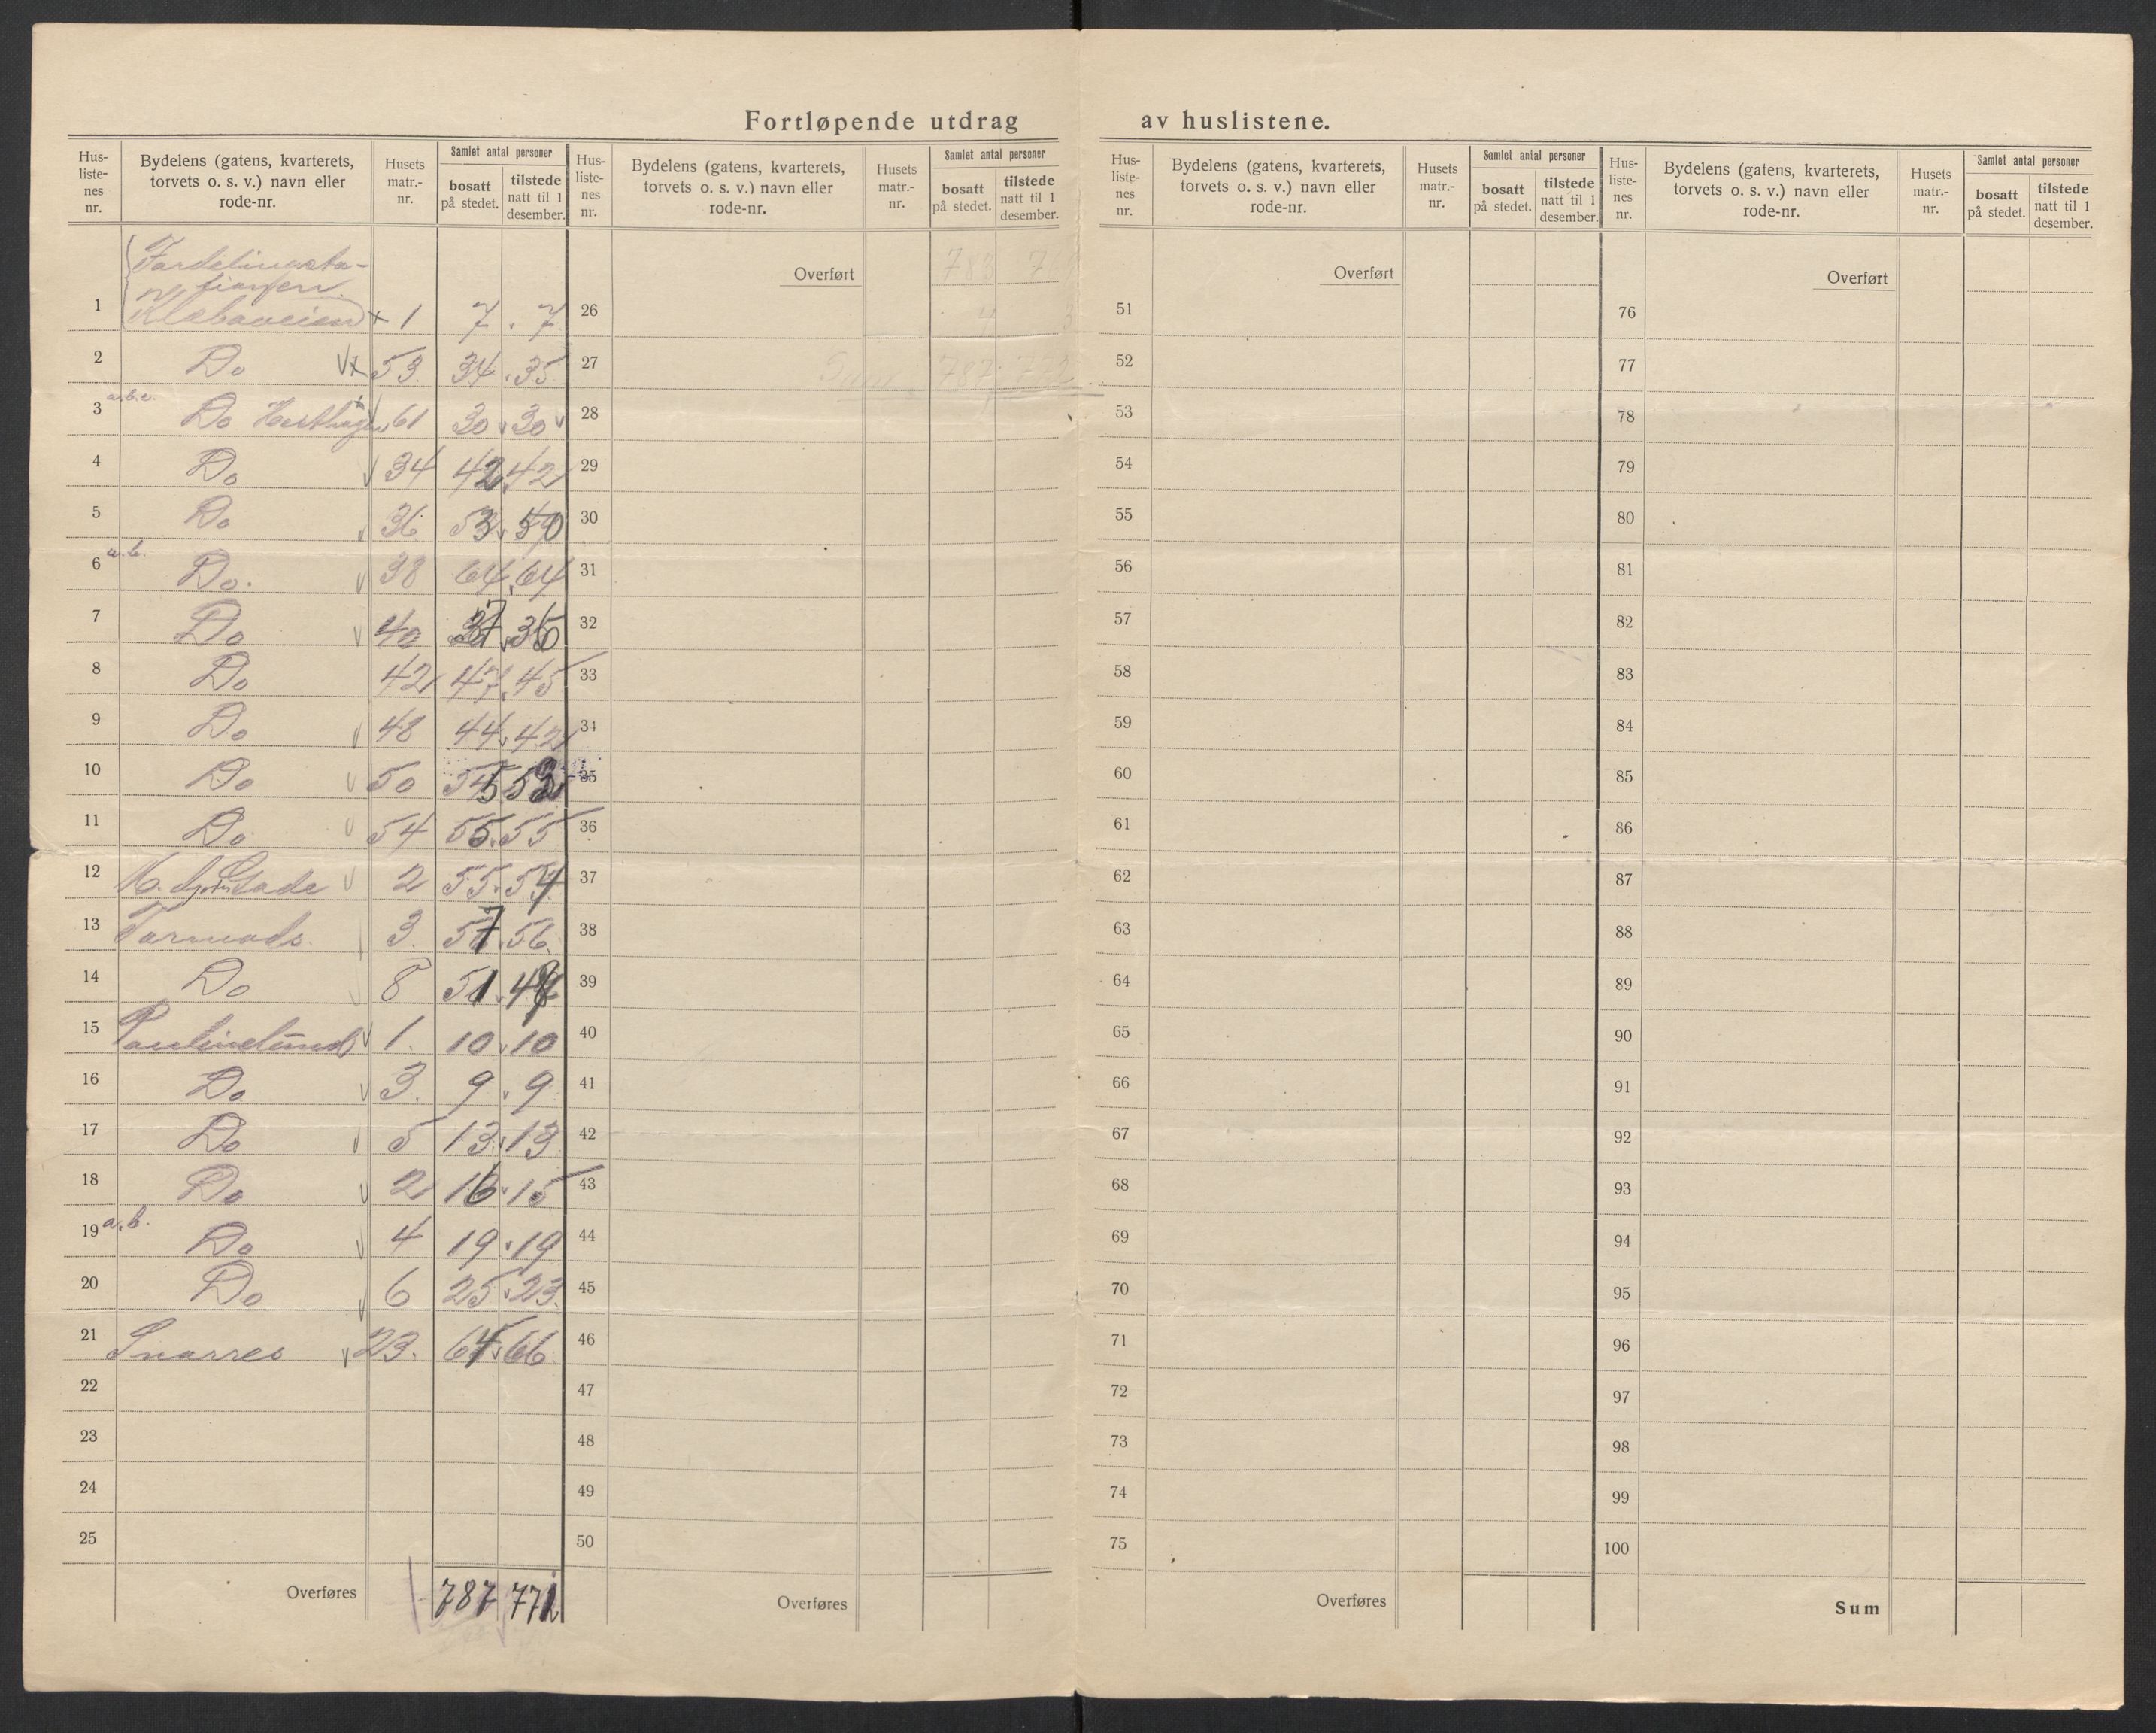 Fortløpende utdrag av huslistene.
Hus-listenes nr. | Bydelens (gatens, kvarterets, torvets o. s. v.) navn eller rode-nr. | Husets matr.-nr. | Samlet antal personer bosatt på stedet. | tilstede natt til 1 desember.
1 Fordelingsta-
tionen
Klæbuveien x 1 7 7
2 Do 53. 34 35
3 a.b.c. Do 61 30 30
4 Do 34 42 42
5 Do 36 53
6 a.b. Do. 38 64 64
7 Do 40 37
8 Do 42 47 45
9 Do 48 44 42
10 Do 50 55
11 Do 54 55 55
12 Gade 2 55 54
13 Tormods. 3. 57 56
14 Do 8 51
15 Paulinelund 1. 10 10
16 Do 3. 9 9
17 Do 5 13 13
18 Do 2 16 15
19 a.b. Do 4 19 19
20 Do 6 25 23
21 Snorres 23. 64 66
22
23
24
25
Overføres 787 771
Hus-listenes nr. | Bydelens (gatens, kvarterets, torvets o. s. v.) navn eller rode-nr. | Husets matr.-nr. | Samlet antal personer bosatt på stedet. | tilstede natt til 1 desember.
Overført 783
26 4 3
27 Sum 787 772
28
29
30
31
32
33
34
35
36
37
38
39
40
41
42
43
44
45
46
47
48
49
50
Overføres
Hus-listenes nr. | Bydelens (gatens, kvarterets, torvets o. s. v.) navn eller rode-nr. | Husets matr.-nr. | Samlet antal personer bosatt på stedet. | tilstede natt til 1 desember.
Overført
51
52
53
54
55
56
57
58
59
60
61
62
63
64
65
66
67
68
69
70
71
72
73
74
75
Overføres
Hus-listenes nr. | Bydelens (gatens, kvarterets, torvets o. s. v.) navn eller rode-nr. | Husets matr.-nr. | Samlet antal personer bosatt på stedet. | tilstede natt til 1 desember.
Overført
76
77
78
79
80
81
82
83
84
85
86
87
88
89
90
91
92
93
94
95
96
97
98
99
100
Sum